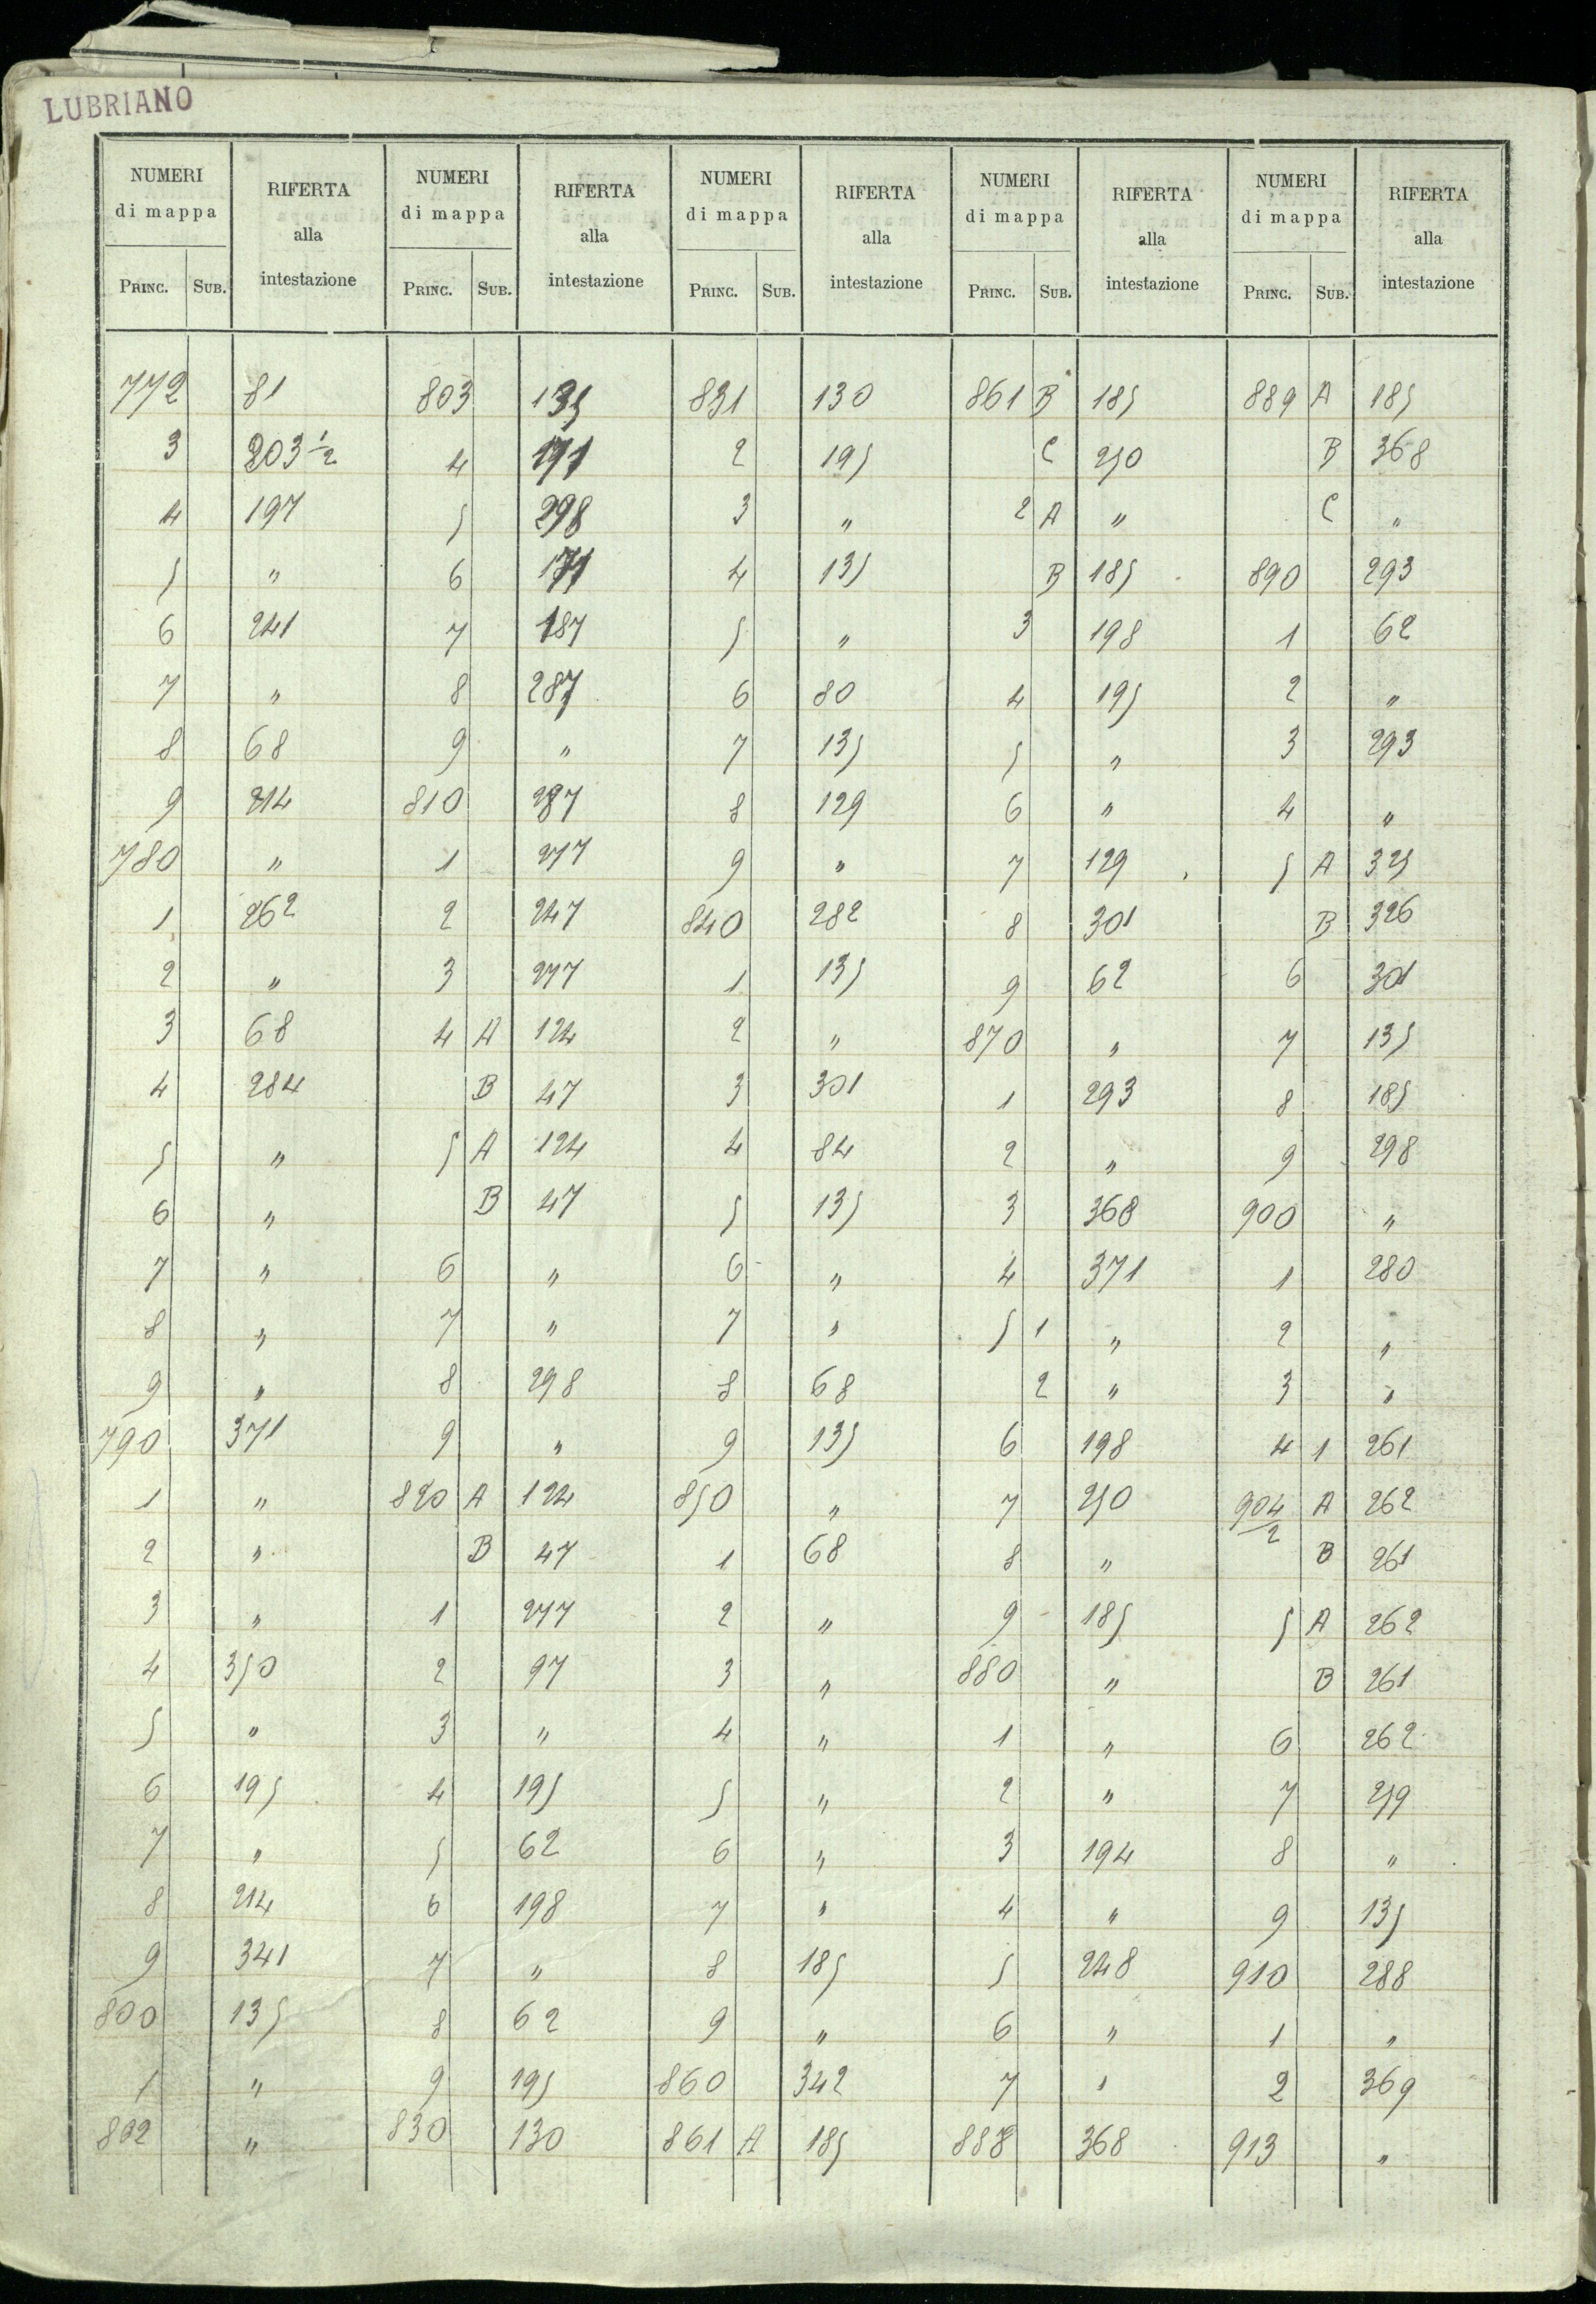 LUBRIANO
NUMERI di mappa | RIFERTA alla intestazione | NUMERI di mappa | RIFERTA alla intestazione | NUMERI di mappa | RIFERTA alla intestazione | NUMERI di mappa | RIFERTA alla intestazione | NUMERI di mappa | RIFERTA alla intestazione
PRINC. | SUB. | PRINC. | SUB. | PRINC. | SUB. | PRINC. | SUB. | PRINC. | SUB.
772 | 81 | 803 | 135 | 831 | 130 | 861 B | 185 | 889 A | 185
3 | 203 1/2 | 4 | 171 | 2 | 195 | C | 250 | B | 368
4 | 197 | 5 | 298 | 3 | " | 2 A | " | C | "
5 | " | 6 | 171 | 4 | 135 | B | 185 | 890 | 293
6 | 241 | 7 | 187 | 5 | " | 3 | 198 | 1 | 62
7 | " | 8 | 287 | 6 | 80 | 4 | 195 | 2 | "
8 | 68 | 9 | " | 7 | 135 | 5 | " | 3 | 293
9 | 214 | 810 | 287 | 8 | 129 | 6 | " | 4 | "
780 | " | 1 | 277 | 9 | " | 7 | 129 | 5 A | 325
1 | 262 | 2 | 247 | 840 | 282 | 8 | 301 | B | 326
2 | " | 3 | 277 | 1 | 135 | 9 | 62 | 6 | 301
3 | 68 | 4 A | 124 | 2 | " | 870 | " | 7 | 135
4 | 284 | B | 47 | 3 | 301 | 1 | 293 | 8 | 185
5 | " | 5 A | 124 | 4 | 84 | 2 | " | 9 | 298
6 | " | B | 47 | 5 | 135 | 3 | 368 | 900 | "
7 | " | 6 | " | 6 | " | 4 | 371 | 1 | 280
8 | " | 7 | " | 7 | " | 5 1 | " | 2 | "
9 | " | 8 | 298 | 8 | 68 | 2 | " | 3 | "
790 | 371 | 9 | " | 9 | 135 | 6 | 198 | 4 1 | 261
1 | " | 820 A | 124 | 850 | " | 7 | 250 | 904/2 A | 262
2 | " | B | 47 | 1 | 68 | 8 | " | B | 261
3 | " | 1 | 277 | 2 | " | 9 | 185 | 5 A | 262
4 | 350 | 2 | 97 | 3 | " | 880 | " | B | 261
5 | " | 3 | " | 4 | " | 1 | " | 6 | 262
6 | 195 | 4 | 195 | 5 | " | 2 | " | 7 | 259
7 | " | 5 | 62 | 6 | " | 3 | 194 | 8 | "
8 | 214 | 6 | 198 | 7 | " | 4 | " | 9 | 135
9 | 341 | 7 | " | 8 | 185 | 5 | 248 | 910 | 288
800 | 135 | 8 | 62 | 9 | " | 6 | " | 1 | "
1 | " | 9 | 195 | 860 | 342 | 7 | " | 2 | 369
802 | " | 830 | 130 | 861 A | 185 | 888 | 368 | 913 | "